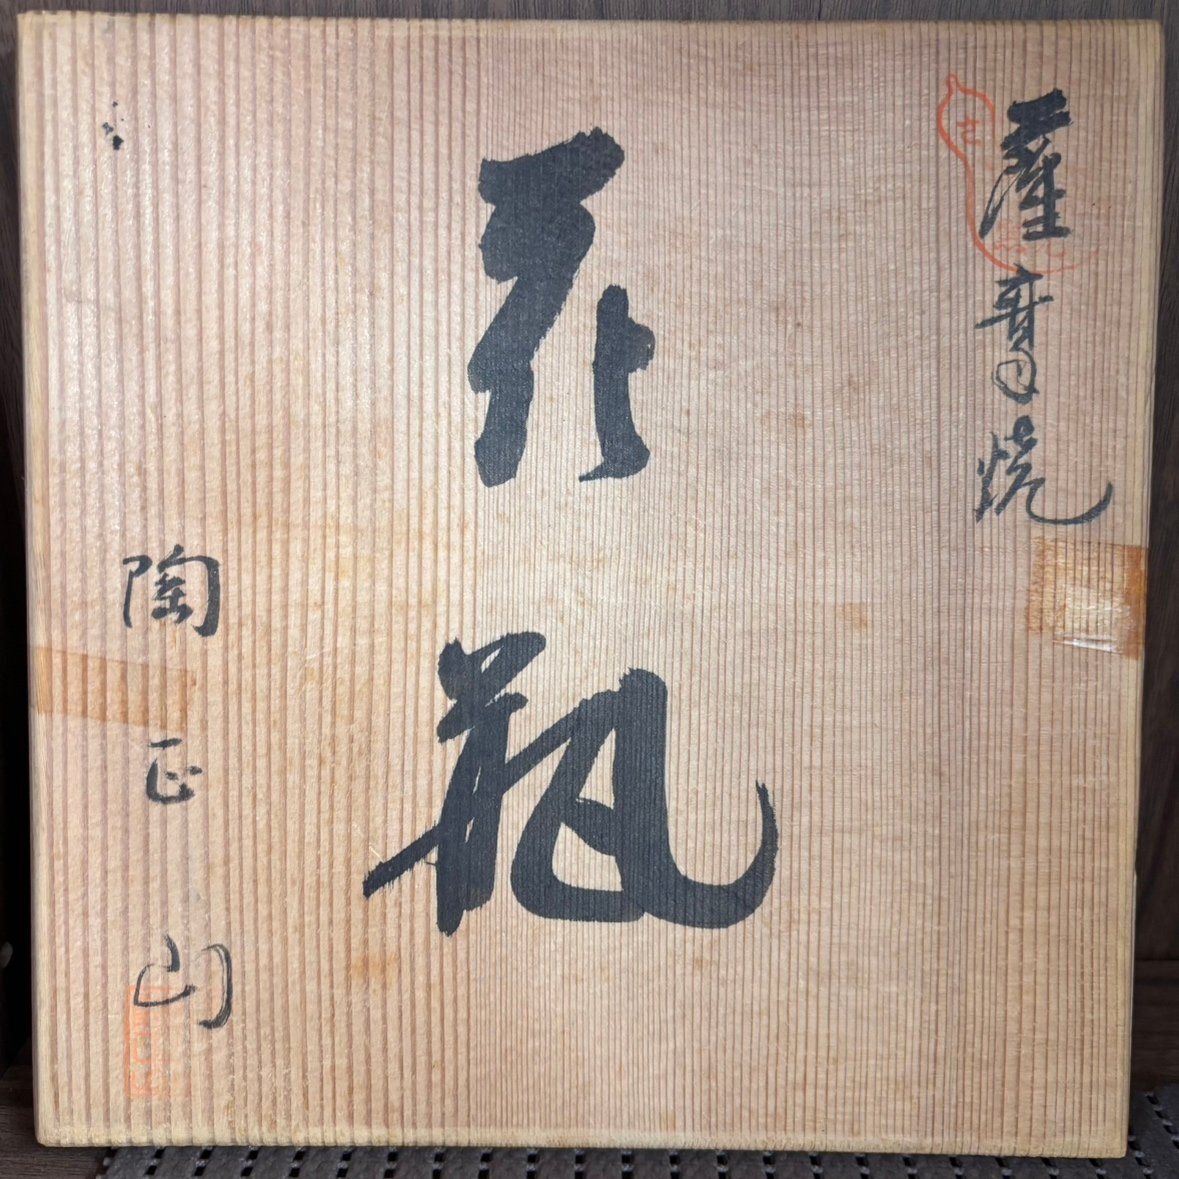 薩摩焼
花瓶
陶正山